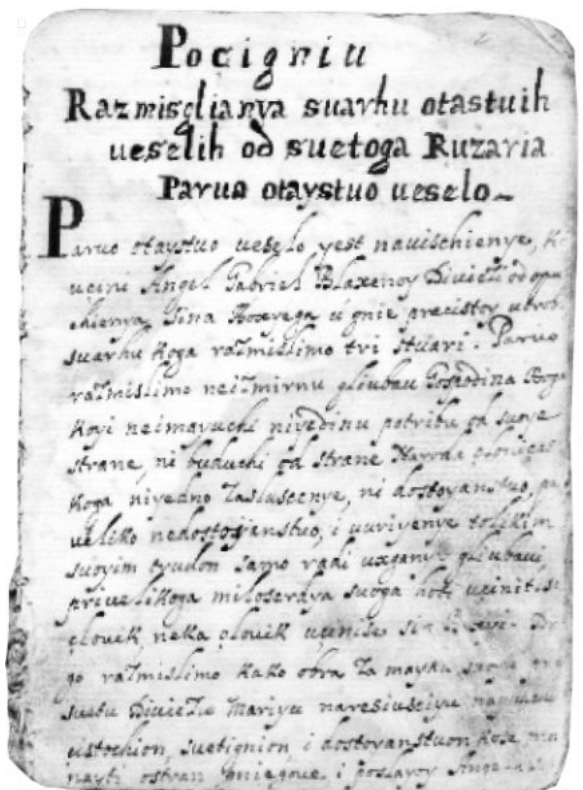 Pocigniu
Razmisglianya suarhu otastuih
ueselih od suetoga Ruzaria
Parua otaystuo ueselo
Paruo otaystuo ueselo yest nauischienye,
ucinu Angel Gabriel Blaxenoy Diuici od
chienya Sina Boxyega u gnie precistoy utrob
suarhu koga razmislimo tri stuari. Paruo
razmislimo neizmirnu gliubau Gospodina Boga
koyi neimayuchi niyednu potribu od suoye
strane, ni buduchi od strane Naroda
koga niyedno zasluscenye, ni dostoyanstuo,
ueliko nedostoyanstuo, i uuriyenye tolikim
suoyim trudon samo radi gliubaui
priuelikoga miloserdya suoga hoti ucinitise
clouik neka clouik ucinise sin
go razmislimo kako obra za mayku
suetu Diuicu Mariyu naresiusciyu
cistochion, suetignion i dostoyanstuon
nayti ostran gniegoue i poslavoy